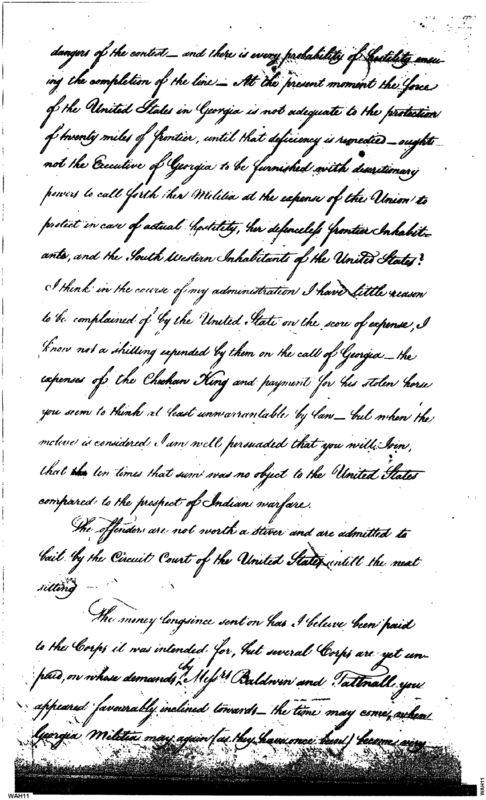 dangers of the contest — and there is every probability of hostility ensu-
ing the completion of the line — At the present moment the force
of the United States in Georgia is not adequate to the protection
of twenty miles of frontier, until that deficiency is remedied — ought
not the Executive of Georgia to be furnished with discretionary
powers to call forth her Militia at the expense of the Union to
protect in case of actual hostility, her defenceless frontier Inhabit-
ants, and the South Western Inhabitants of the United States?
I think in the course of my administration I have little reason
to be complained of by the United State on the score of expense, I
know not a shilling expended by them on the call of Georgia — the
expenses of the Cheehaw King and payment for his stolen horse
you seem to think at least unwarrantable by law — but when the
motive is considered I am well persuaded that you will Join,
that ten times that sum was no object to the United States
compared to the prospect of Indian warfare.
The offenders are not worth a stiver and are admitted to
bail by the Circuit Court of the United States untill the next
sitting
The money long since sent on has I beleive been paid
to the Corps it was intended for, but several Corps are yet un-
paid, on whose demands by Messrs Baldwin and Tattnall you
appeared favourably inclined towards — the time may come, when
Georgia Militia may again (as they have once been) become very
WAH11
WAH11